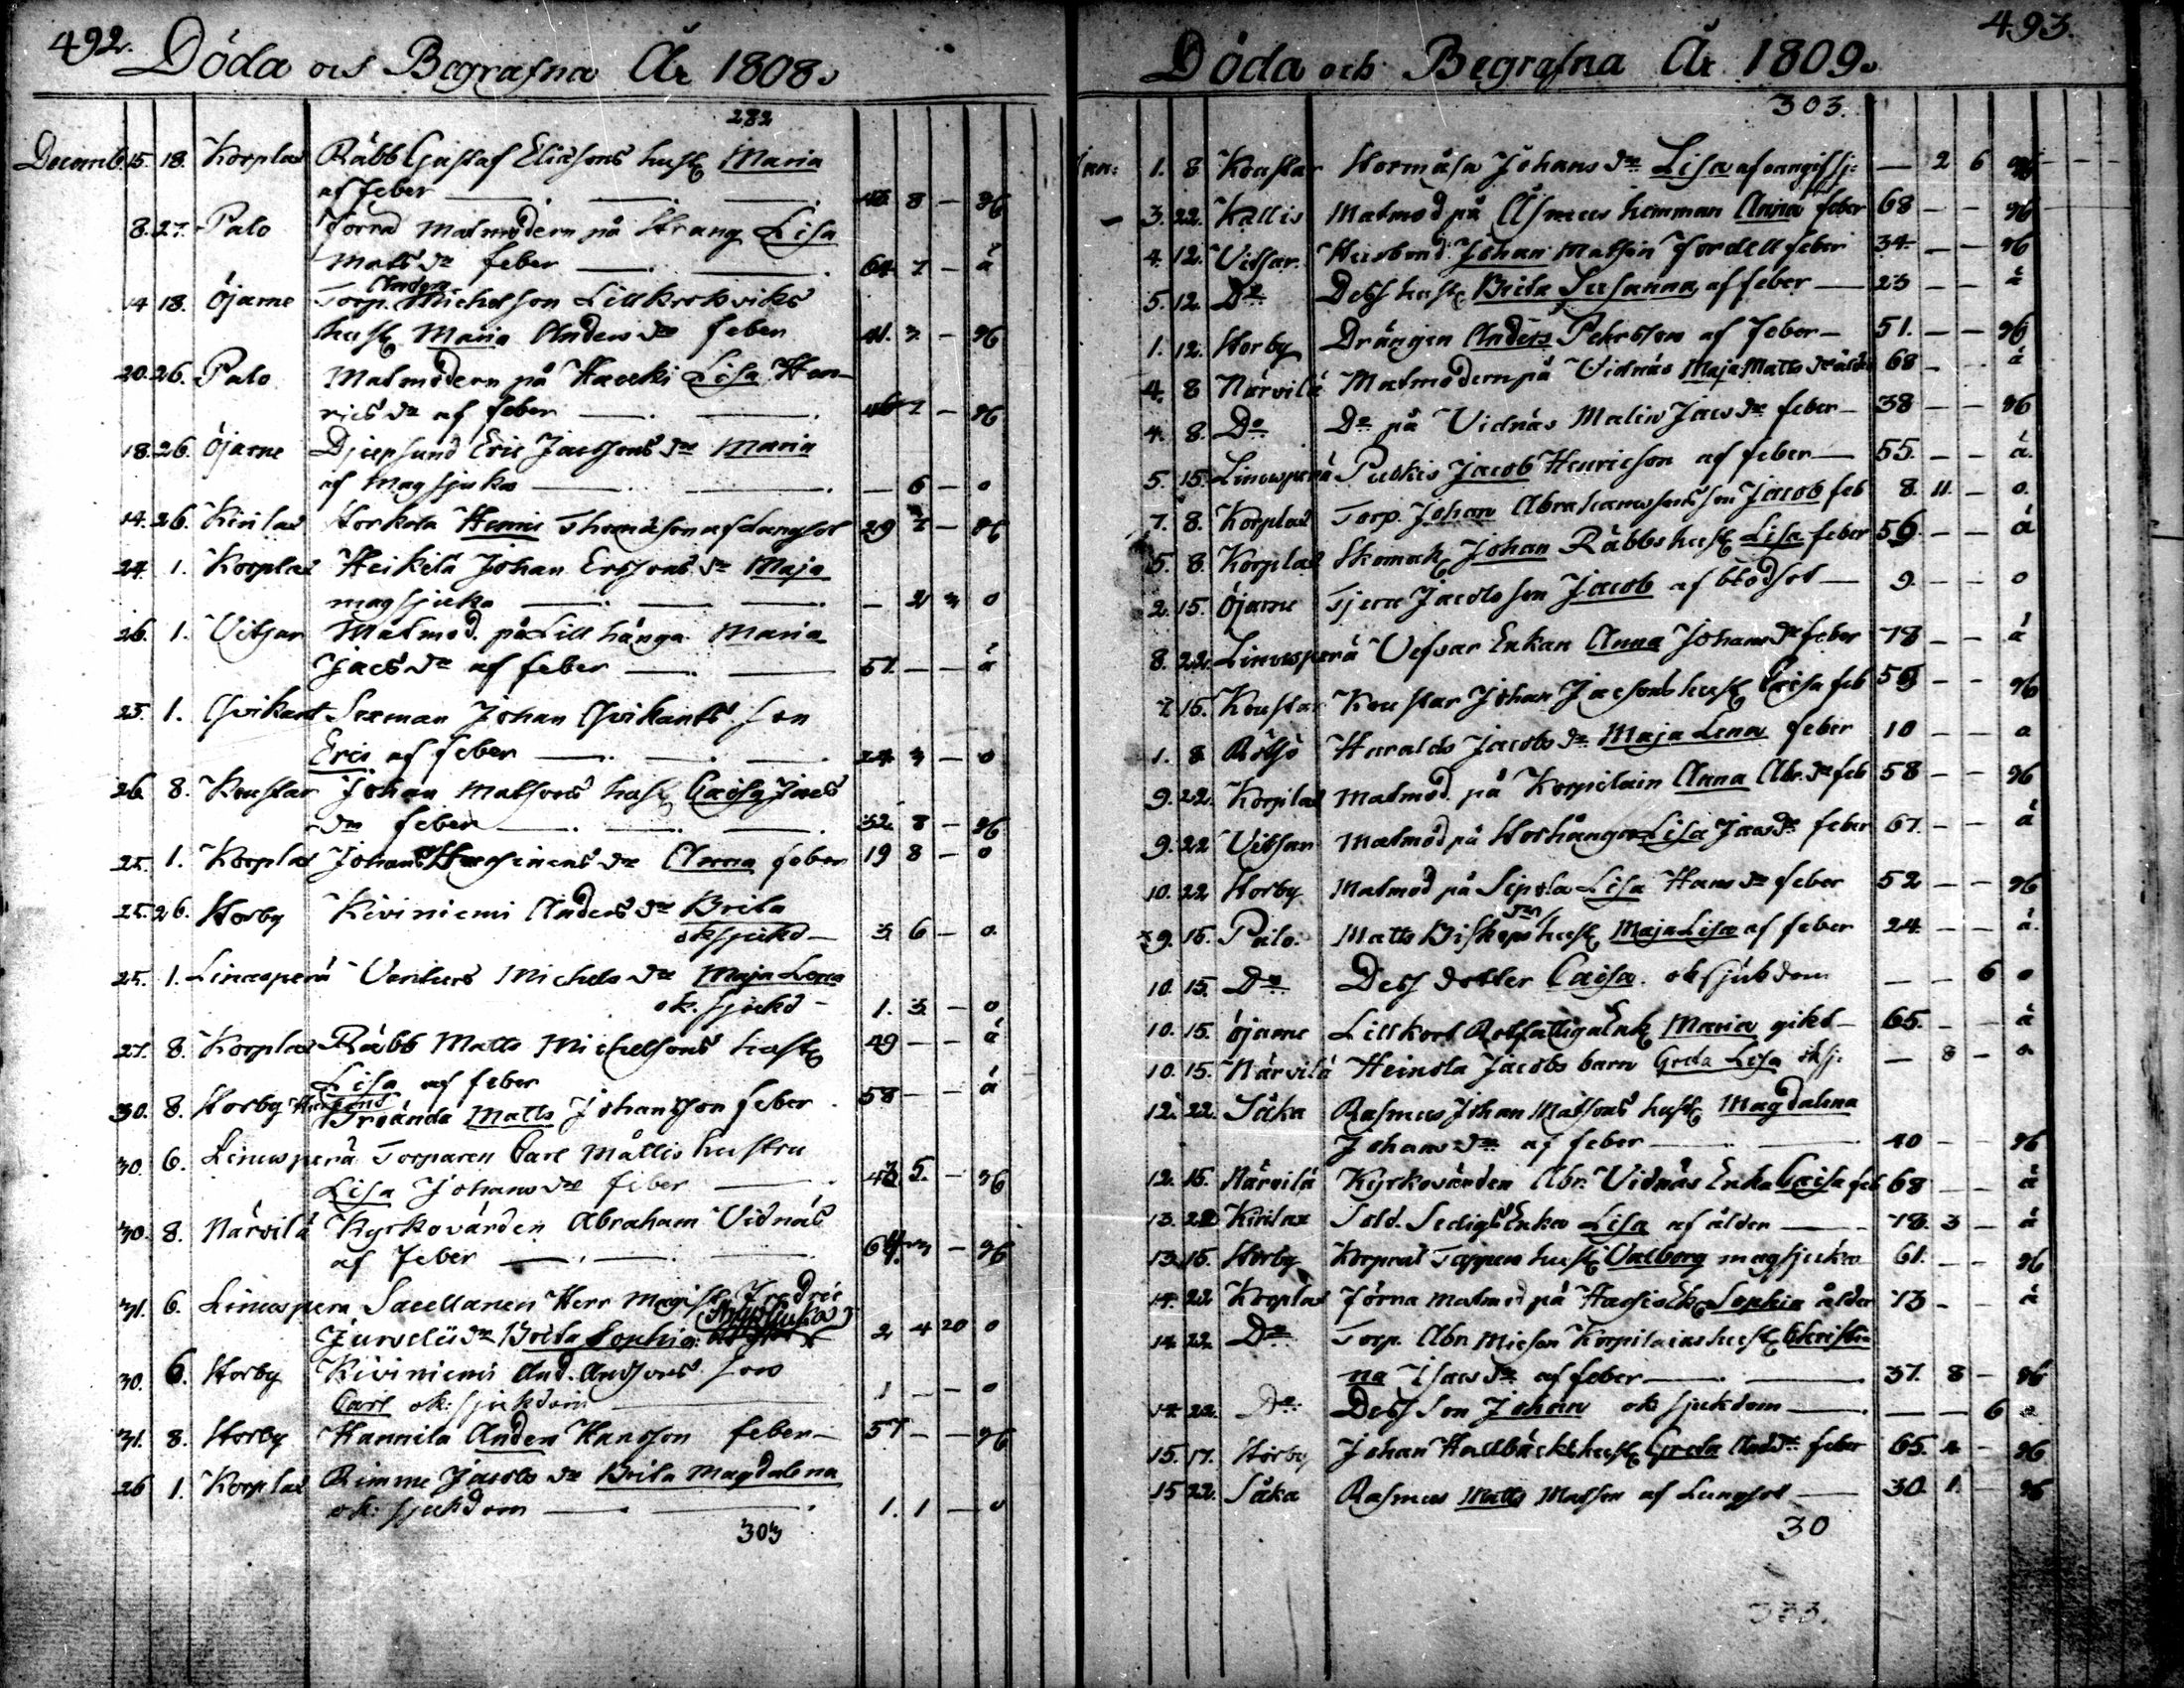 492.
Döda och Begrafna År 1808.
282
Decemb. 15. 18. Korplax Räbb Gustaf Eliæsons hust. Maria
af feber 8 — g
8. 27. Palo Förra Matmodern på Strang Lisa
Mats dr feber 64 7 — ä
Anders
14 18. Öjarne Torp. Michelson Lillkrokviks
hust. Maria Anders dr feber 41. 3 — g
20. 26. Palo Matmodern på Hacki Lisa Hen-
rics dr af feber — g
18. 26. Öjarne Djupsund Eric Jacssons dr Maria
af magsjuka — 6 — o
14. 26. Kirilax Storkola Henric Thomason af lungsot 29 7 — g
24. 1. Korplax Heikilä Johan Erssons dr Maja
magsjuka — 2 3 o
26. 1. Vitsar Matmod. på Lillhånga Maria
Jacs dr af feber 57. — — ä
23. 1. Qvikant Sexman Johan Qvikants son
Eric af feber 24. 3 — o
26. 8. Knustar Johan Matsons hust. Caisa Jacs
dr feber 32. 8 — g
25. 1. Korplax Johan dr Anna feber 19 8 — o
25. 26. Storby Kiviniemi Anders dr Brita
ok sjukd — 3 6 — o
25. 1. Linusperä Michels dr Maja Lena
ok. sjukd — 1. 3 — o
27. 8. Korplax Räbb Matts Michelsons hust. 49 — — ä
Lisa af feber
30. 8. Storby Matts Johansson feber 58 — — ä
30 6. Linusperä Torparen Carl Mållis hustru
Lisa Johans dr feber 43 5. — g
30. 8. Närvilä Kyrkovärden Abraham Vidnäs
af Feber 64. 3 — g
31. 6. Linusperä Sacellanen Herr Magist. Fredric
Jurvelii dr Brita Sophia 2 4 20 o
30. 6. Storby Kiviniemi And. Andsons son
Carl ok: sjukdom 1 — — o
31. 8. Storby Kannila Anders Hansson feber — 57 — — g
26 1. Korplax Rimme Jacobs dr Brita Magdalena
ok: sjukdom 1. 1 — o
303
493.
Döda och Begrafna År 1809.
303.
Jan: 1. 8. Knustar Stormåsa Johans dr Lisa af sj: — 2 6
3. 22. Kallis Matmod på Åsmus hemman Anna feber 68 — — g
4. 12. Vitsar. Husbond. Johan Matsson Fordell feber 34 — — g
5. 12. Do Dess hust. Brita Susanna af feber 23 — — ä
1. 12. Storby Drängen Anders Pehrsson af Feber — 51. — — g
4. 8 Närvilä Matmodern på Vidnäs Maja Matts dr ålder 68 — — ä
4. 8. Do Do på Vidnäs Malin Jacs dr feber — 38 — — g
5. 15. Linusperä Puskis Jacob Henricson af feber — 55. — — ä
7. 8. Korplax Torp. Johan Abrahamssons son Jacob feb 8. 11. — o.
5. 8. Korplax Skomak. Johan Räbbs hust. Lisa feber 56. — — ä
2. 15. Öjarne Tjeru Jacobs son Jacob af blodsot — 9. — — o
8. 22. Linusperä Vefvar Enkan Anna Johans dr feber 78 — — ä
7. 15. Knustar Knustar Johan Jacsons hust. Caisa feb 56 — — g
1. 8. Rödsö Haralds Jacobs dr Maja Lena feber 10 — — o
9. 22. Korplax Matmod. på Korpilain Anna Abr. dr feb 58 — — g
9. 22 Vitsar Matmod på Storhånga Lisa Jacs dr feber 67. — — ä
10. 22 Storby Matmod på Sipola Lisa Hans dr feber 52 — — g
9. 15. Palo. Matts Biskops hust. Maja Lisa af feber 24 — — ä
10. 15. Do Dess dotter Caisa. ok sjukdom — — 6 o
10. 15. Öjarne Lillkort Rotfattiga Enk. Maria gikt — 65. — — ä
10. 15. Närvilä Heinola Jacobs barn Greta Lisa ok sj: — 8 — o
12. 22. Såka Rasmus Johan Matsons hust. Magdalena
Johans dr af feber 40 — — g
12. 15. Närvilä Kyrkovärden Abr. Vidnäs Enka Caisa feb 68 — — ä
13. 22 Kirilax Sold. Sedigs Enka Lisa af ålder 78. 3 — ä
13. 15. Storby Korporal Tappers hust. Valborg magsjuka 61. — — g
14. 22 Korplax Förra matmod på Sophia ålder 73 — — ä
14. 22. Do Torp. Abr. Micson Korpilains hust. Christi
na Isacs dr af feber 37. 8 — g
14. 22. Do Dess Son Johan ok sjukdom — — 6 o
15. 17. Storby Johan Hallbäcks hust. Greta And. dr feber 65. — g
15 22. Såka Rasmus Matts Matsson af Lungsot 30. 1. — g
30
333.